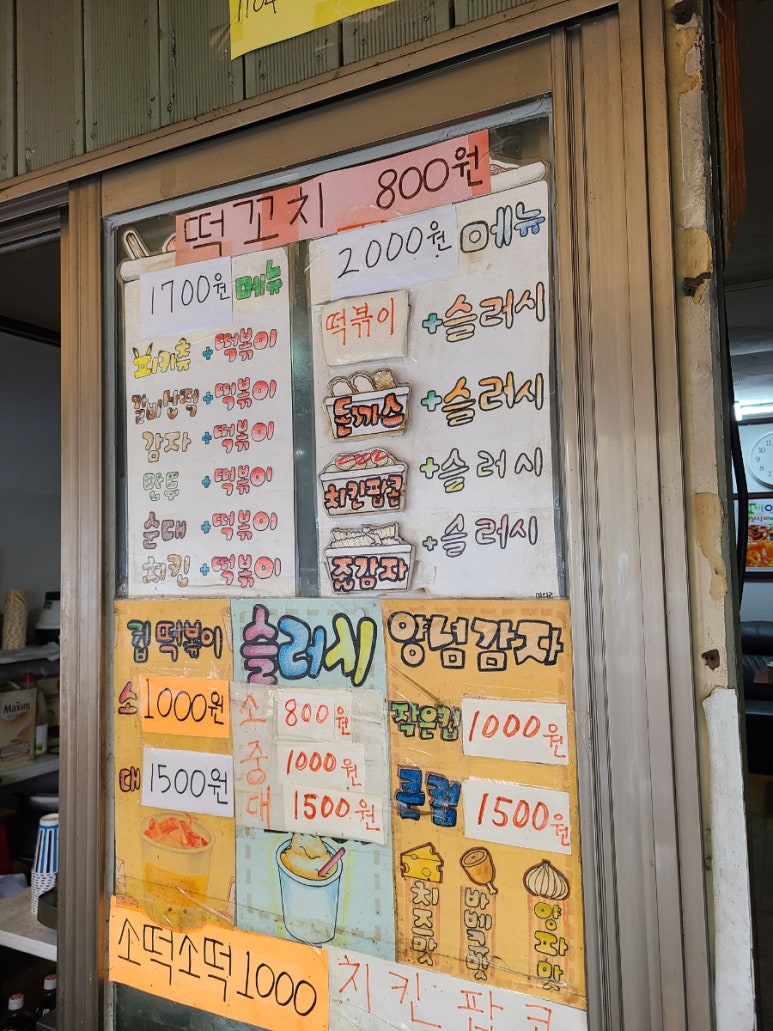 1104
떡꼬치 800원
1700원 메뉴
피카츄 + 떡볶이
갈비산적 + 떡볶이
감자 + 떡볶이
만두 + 떡볶이
순대 + 떡볶이
치킨 + 떡볶이
2000원 메뉴
떡볶이 + 슬러시
돈까스 + 슬러시
치킨팝콘 + 슬러시
감자 + 슬러시
컵떡볶이
소 1000원
대 1500원
슬러시
소 800원
중 1000원
대 1500원
양념감자
작은컵 1000원
큰컵 1500원
치즈맛
바베큐맛
양파맛
소떡소떡 1000
치킨팝콘
Maxim